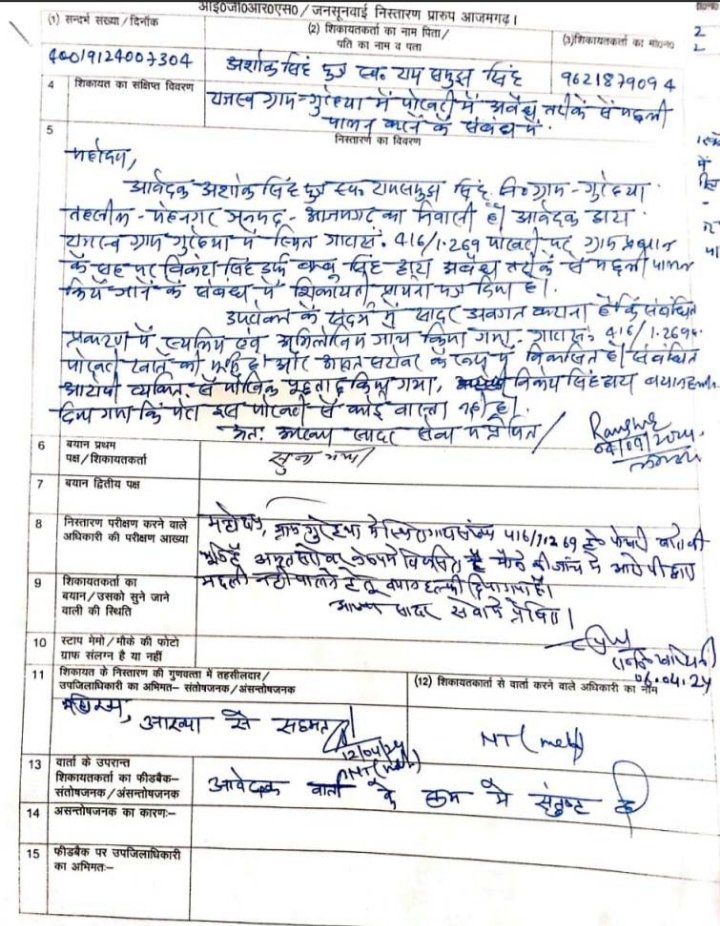 आई०जी०आर०एस० / जनसुनवाई निस्तारण प्रारुप आजमगढ़।
(1) सन्दर्भ संख्या / दिनॉंक
(2) शिकायतकर्ता का नाम पिता/
पति का नाम व पता
(3)शिकायतकर्ता का मो०न०
40019124007304
अशोक सिंह पुत्र स्व० राम समुझ सिंह
9621879094
4 शिकायत का संक्षिप्त विवरण
राजस्व ग्राम-गुरेहथा में पोखरी में अवैध तरीके से मछली
पालन करने के संबंध में.
5 निस्तारण का विवरण
महोदय,
आवेदक अशोक सिंह पुत्र स्व० रामसमुझ सिंह नि० ग्राम-गुरेहथा
तहसील - मेहनगर जनपद - आजमगढ़ का निवासी है। आवेदक द्वारा
राजस्व ग्राम गुरेहथा में स्थित गाटा सं. 416/1.269 पोखरी पर ग्राम प्रधान
के सह पर विकेश सिंह उर्फ बब्बू सिंह द्वारा अवैध तरीके से मछली पालन
किये जाने के संबंध में शिकायती प्रार्थना पत्र दिया है।
उपरोक्त के संदर्भ में सादर अवगत कराना है कि संबंधित
प्रकरण में स्थलीय एवं अभिलेखीय जांच किया गया. गाटा सं. 416/1.269
पोखरी खाते की भूमि है। और अमृत सरोवर के रूप में विकसित है। संबंधित
आरोपी व्यक्ति से मौखिक पूछताछ किया गया, सिंह द्वारा बयान हल्फी
दिया गया कि मेरा इस पोखरी से कोई वास्ता नहीं है।
अतः आख्या सादर सेवा में प्रेषित
04/04/2024
6 बयान प्रथम
पक्ष / शिकायतकर्ता
सुना गया
7 बयान द्वितीय पक्ष
8 निस्तारण परीक्षण करने वाले
अधिकारी की परीक्षण आख्या
महोदय, ग्राम गुरेहथा में स्थित गाटा संख्या 416/1.269 हे० पोखरी खाते की
भूमि है अमृत सरोवर के रूप में विकसित है मौके की जांच में आरोपी द्वारा
9 शिकायतकर्ता का
बयान / उसको सुने जाने
वाली की स्थिति
मछली नहीं पालने हेतु बयान हल्फी दिया गया है।
आख्या सादर सेवा में प्रेषित।
06.04.24
10 स्टाप मेमो / मौके की फोटो
ग्राफ संलग्न है या नहीं
11 शिकायत के निस्तारण की गुणवत्ता में तहसीलदार/
उपजिलाधिकारी का अभिमत– संतोषजनक / अंसन्तोषजनक
(12) शिकायतकर्ता से वार्ता करने वाले अधिकारी का नाम
आख्या से सहमत
12/04/24
NT (meh)
13 वार्ता के उपरान्त
शिकायतकर्ता का फीडबैक–
संतोषजनक / अंसन्तोषजनक
आवेदक वार्ता के क्रम में संतुष्ट है
14 असन्तोषजनक का कारणः–
15 फीडबैक पर उपजिलाधिकारी
का अभिमतः–